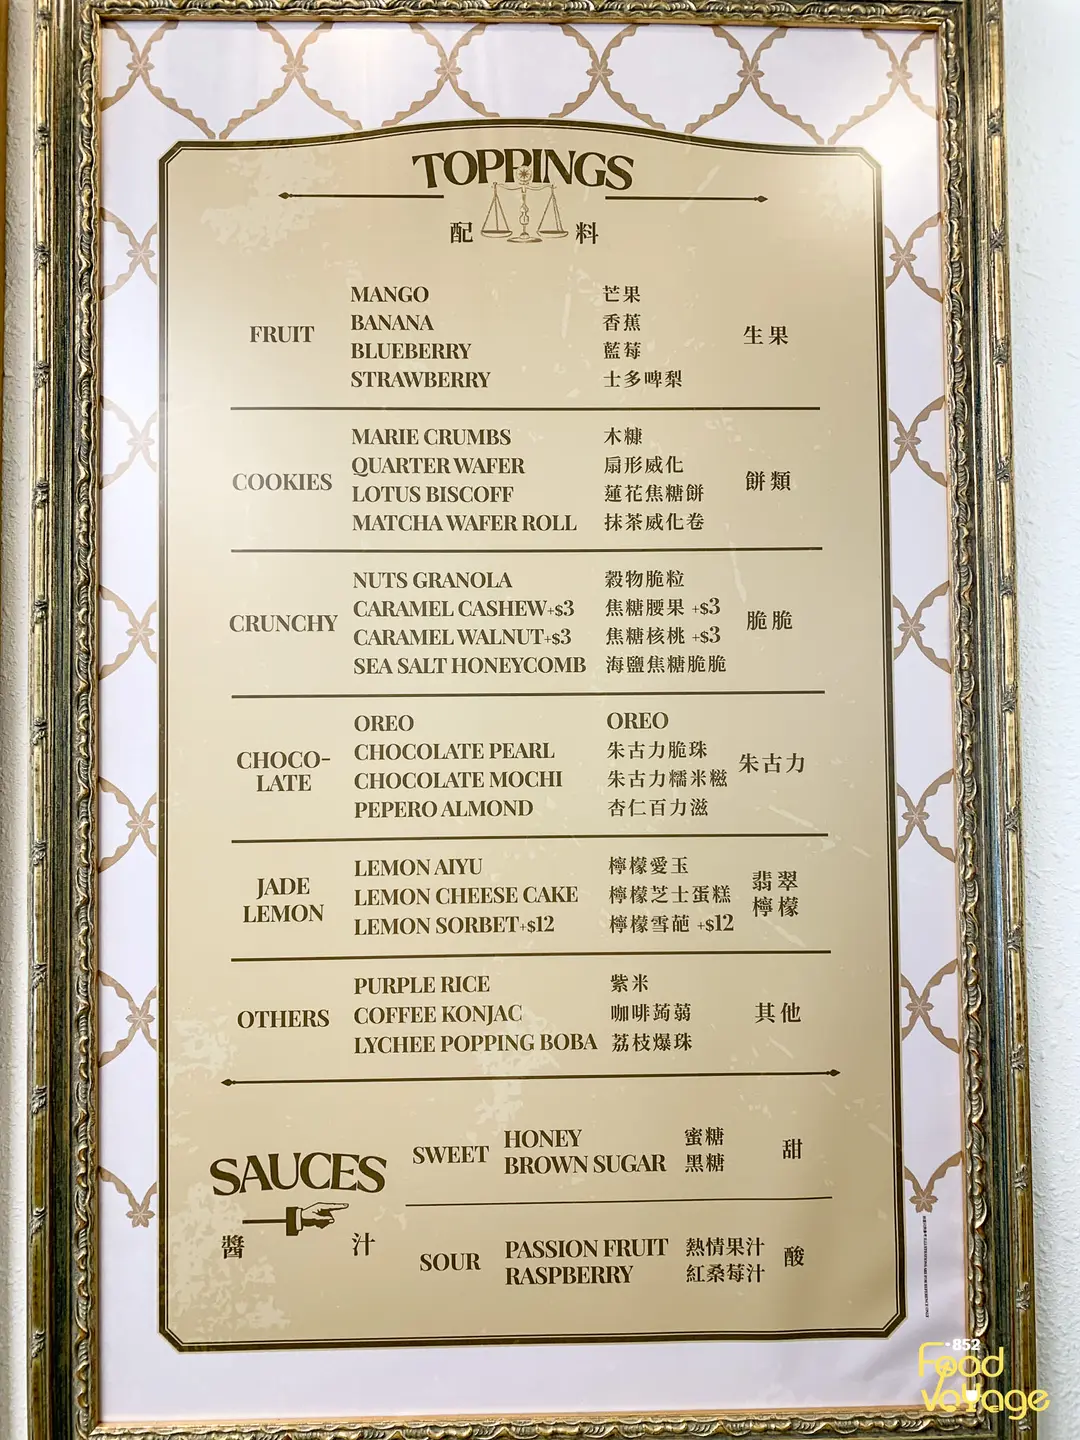 TOPPINGS
配料
FRUIT
MANGO 芒果
BANANA 香蕉
BLUEBERRY 藍莓
STRAWBERRY 士多啤梨
生果
COOKIES
MARIE CRUMBS 木糠
QUARTER WAFER 扇形威化
LOTUS BISCOFF 蓮花焦糖餅
MATCHA WAFER ROLL 抹茶威化卷
餅類
CRUNCHY
NUTS GRANOLA 穀物脆粒
CARAMEL CASHEW+$3 焦糖腰果 +$3
CARAMEL WALNUT+$3 焦糖核桃 +$3
SEA SALT HONEYCOMB 海鹽焦糖脆脆
脆脆
CHOCO-
LATE
OREO OREO
CHOCOLATE PEARL 朱古力脆珠
CHOCOLATE MOCHI 朱古力糯米糍
PEPERO ALMOND 杏仁百力滋
朱古力
JADE
LEMON
LEMON AIYU 檸檬愛玉
LEMON CHEESE CAKE 檸檬芝士蛋糕
LEMON SORBET+$12 檸檬雪葩 +$12
翡翠
檸檬
OTHERS
PURPLE RICE 紫米
COFFEE KONJAC 咖啡蒟蒻
LYCHEE POPPING BOBA 荔枝爆珠
其他
SAUCES
醬汁
SWEET
HONEY 蜜糖
BROWN SUGAR 黑糖
甜
SOUR
PASSION FRUIT 熱情果汁
RASPBERRY 紅桑莓汁
酸
+852
Food
Voyage